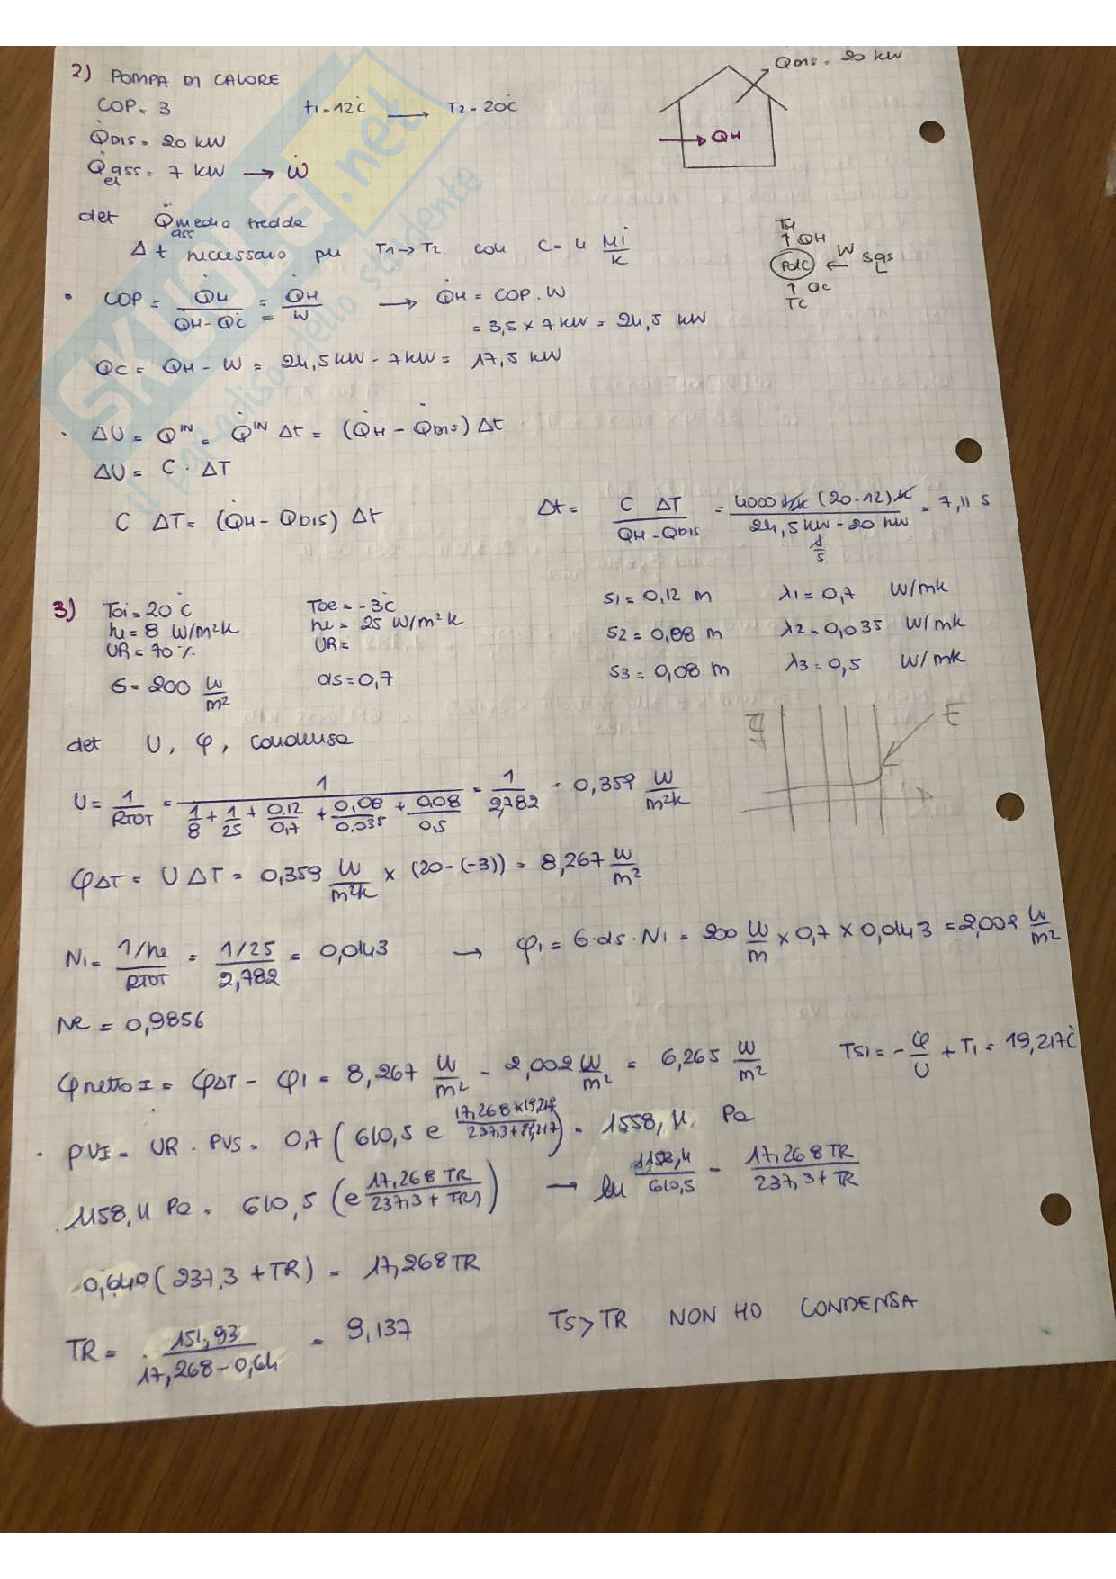 2) POMPA DI CALORE
Q̇DIS = 20 kW
COP = 3 t1 = 12°C → T2 = 20°C
Q̇DIS = 20 kW
QH
Q̇ass el = 7 kW → Ẇ
det Q̇ass medio fredda
Δt necessario per T1→T2 con C = 4 MJ/K
TH
↑ QH
PdC ← W
↑ QC
TC
• COP = Q̇H / (Q̇H - Q̇C) = Q̇H / Ẇ → Q̇H = COP · W
= 3,5 x 7 kW = 24,5 kW
QC = QH - W = 24,5 kW - 7 kW = 17,5 kW
• ΔU = Q^IN = Q̇^IN Δt = (Q̇H - Q̇DIS) Δt
ΔU = C · ΔT
C ΔT = (Q̇H - QDIS) Δt Δt = C ΔT / (QH - QDIS) = 4000 (20-12) K / (24,5 kW - 20 kW) = 7,11 s
J/s
3) Toi = 20°C Toe = -3°C S1 = 0,12 m λ1 = 0,7 W/mk
hi = 8 W/m²k he = 25 W/m²k S2 = 0,08 m λ2 = 0,035 W/mk
UR = 70% UR =
S3 = 0,08 m λ3 = 0,5 W/mk
G = 200 W/m² αs = 0,7
det U, φ, condensa
E
U = 1/RTOT = 1 / (1/8 + 1/25 + 0,12/0,7 + 0,08/0,035 + 0,08/0,5) = 1/2,782 = 0,359 W/m²k
φΔT = U ΔT = 0,359 W/m²k x (20-(-3)) = 8,267 W/m²
N1 = (1/he)/RTOT = (1/25)/2,782 = 0,0143 → φ1 = G·αs·N1 = 200 W/m x 0,7 x 0,0143 = 2,002 W/m²
NE = 0,9856
φnetto I = φΔT - φ1 = 8,267 W/m² - 2,002 W/m² = 6,265 W/m² TSI = -φ/U + T1 = 19,217°C
• PVI = UR · PVS = 0,7 (610,5 e^(17,268 x 19,217 / 237,3 + 19,217)) = 1558,4 Pa
1158,4 Pa = 610,5 (e^(17,268 TR / 237,3 + TR)) → ln 1158,4/610,5 = 17,268 TR / (237,3 + TR)
0,640 (237,3 + TR) = 17,268 TR
TR = 151,93 / (17,268 - 0,64) = 9,137 TS > TR NON HO CONDENSA